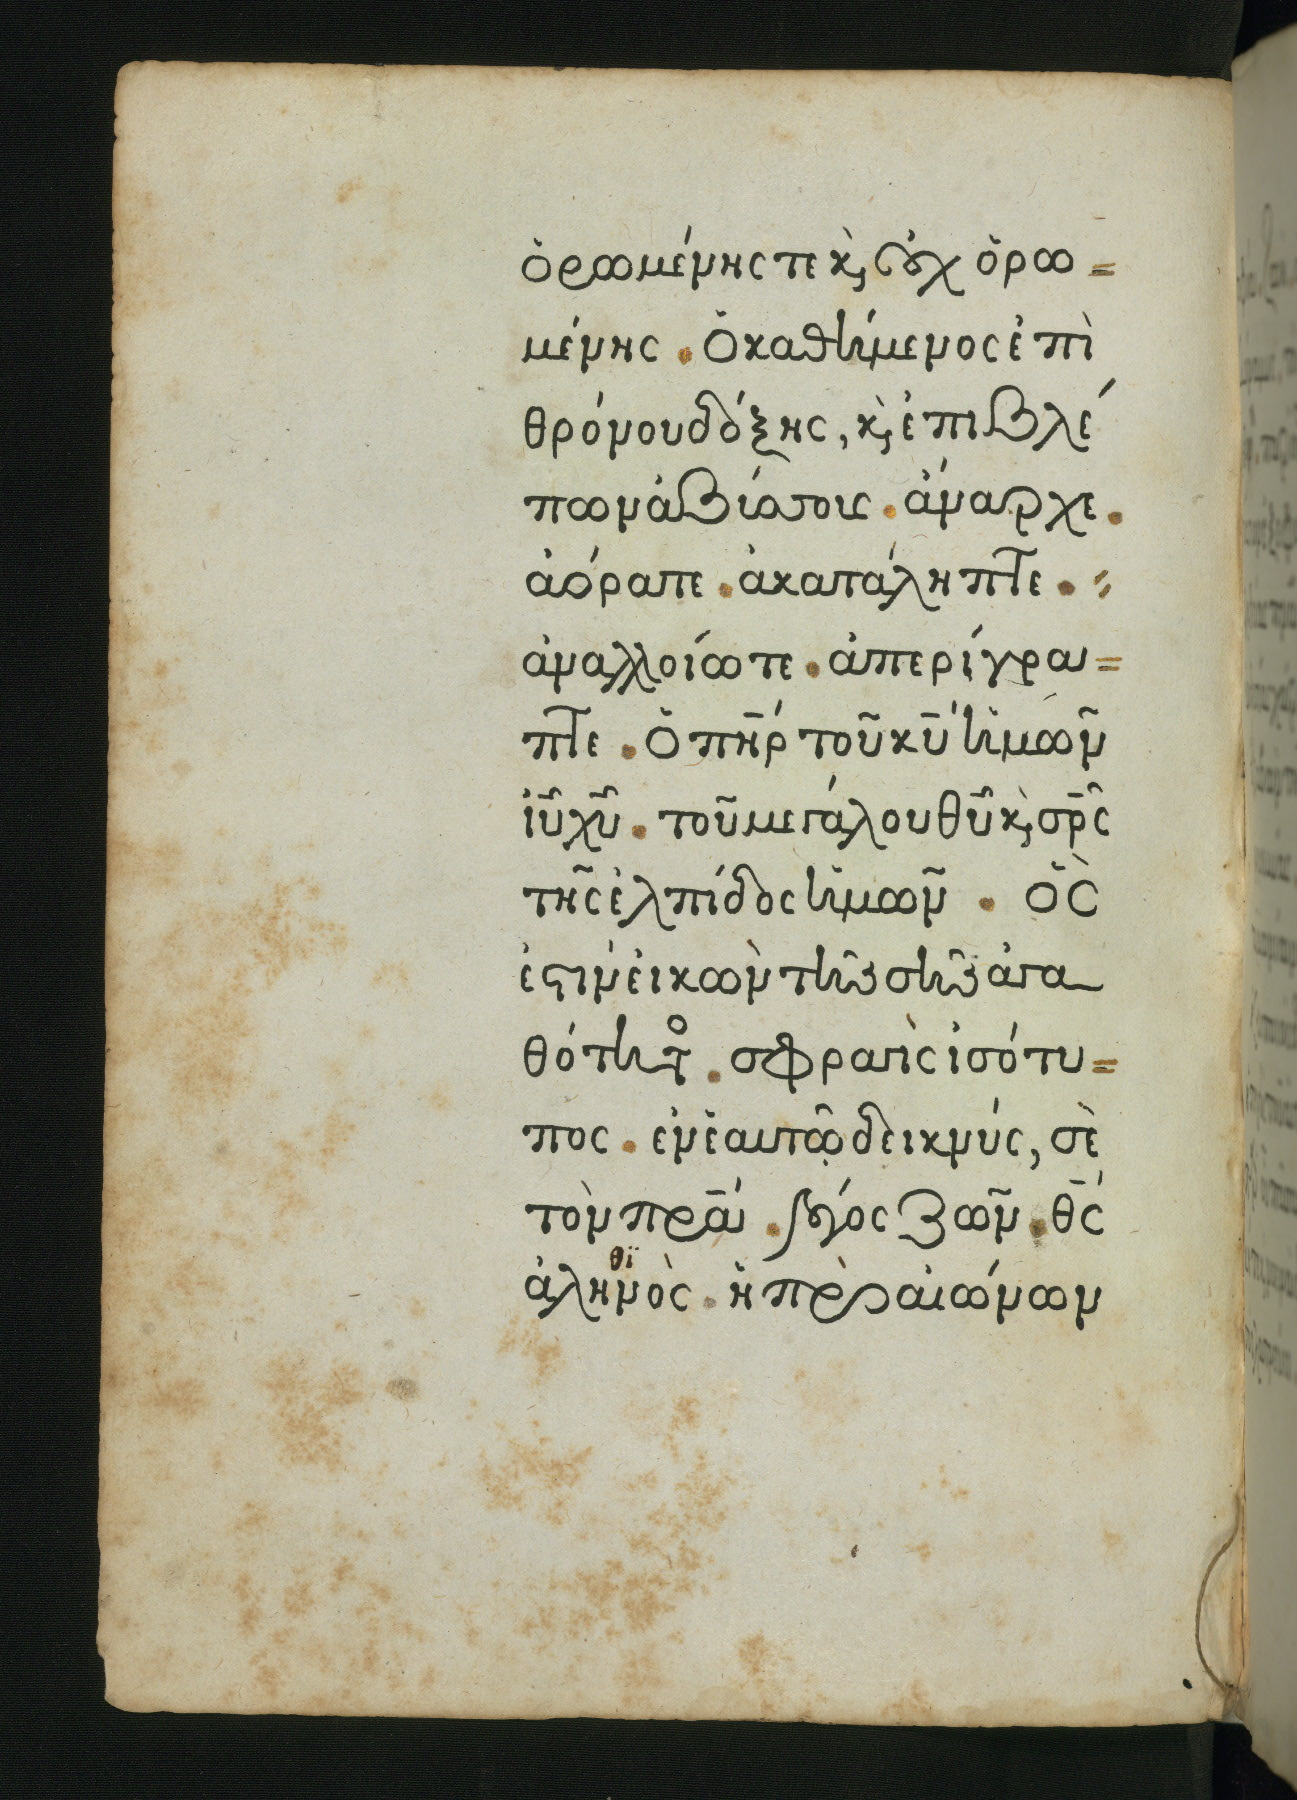 ὁρωμένης τε κ̀, οὐχ ὁρω=
μένης . Ὁ καθήμενος ἐπὶ
θρόνου δόξης, κ̀, ἐπιβλέ
πων ἀβύσσους . ἄναρχε .
ἀόρατε . ἀκατάληπτε .
ἀναλλοίωτε . ἀπερίγρα=
πτε . Ὁ πη̅ρ τοῦ κ̅υ ἡμῶν
ι̅υ χ̅υ . τοῦ μεγάλου θ̅υ κ̀, σρ̅ς
τῆς ἐλπίδος ἡμῶν . ὅς
ἐστιν εἰκὼν τῆς σῆς ἀγα
θότητο . σφραγὶς ἰσότυ=
πος . ἐν ἑαυτῷ δεικνύς, σὲ
τὸν πρ̅α . λόγος ζῶν . θ̅ς
ἀληθινὸς . ἡ πρὸ αἰώνων